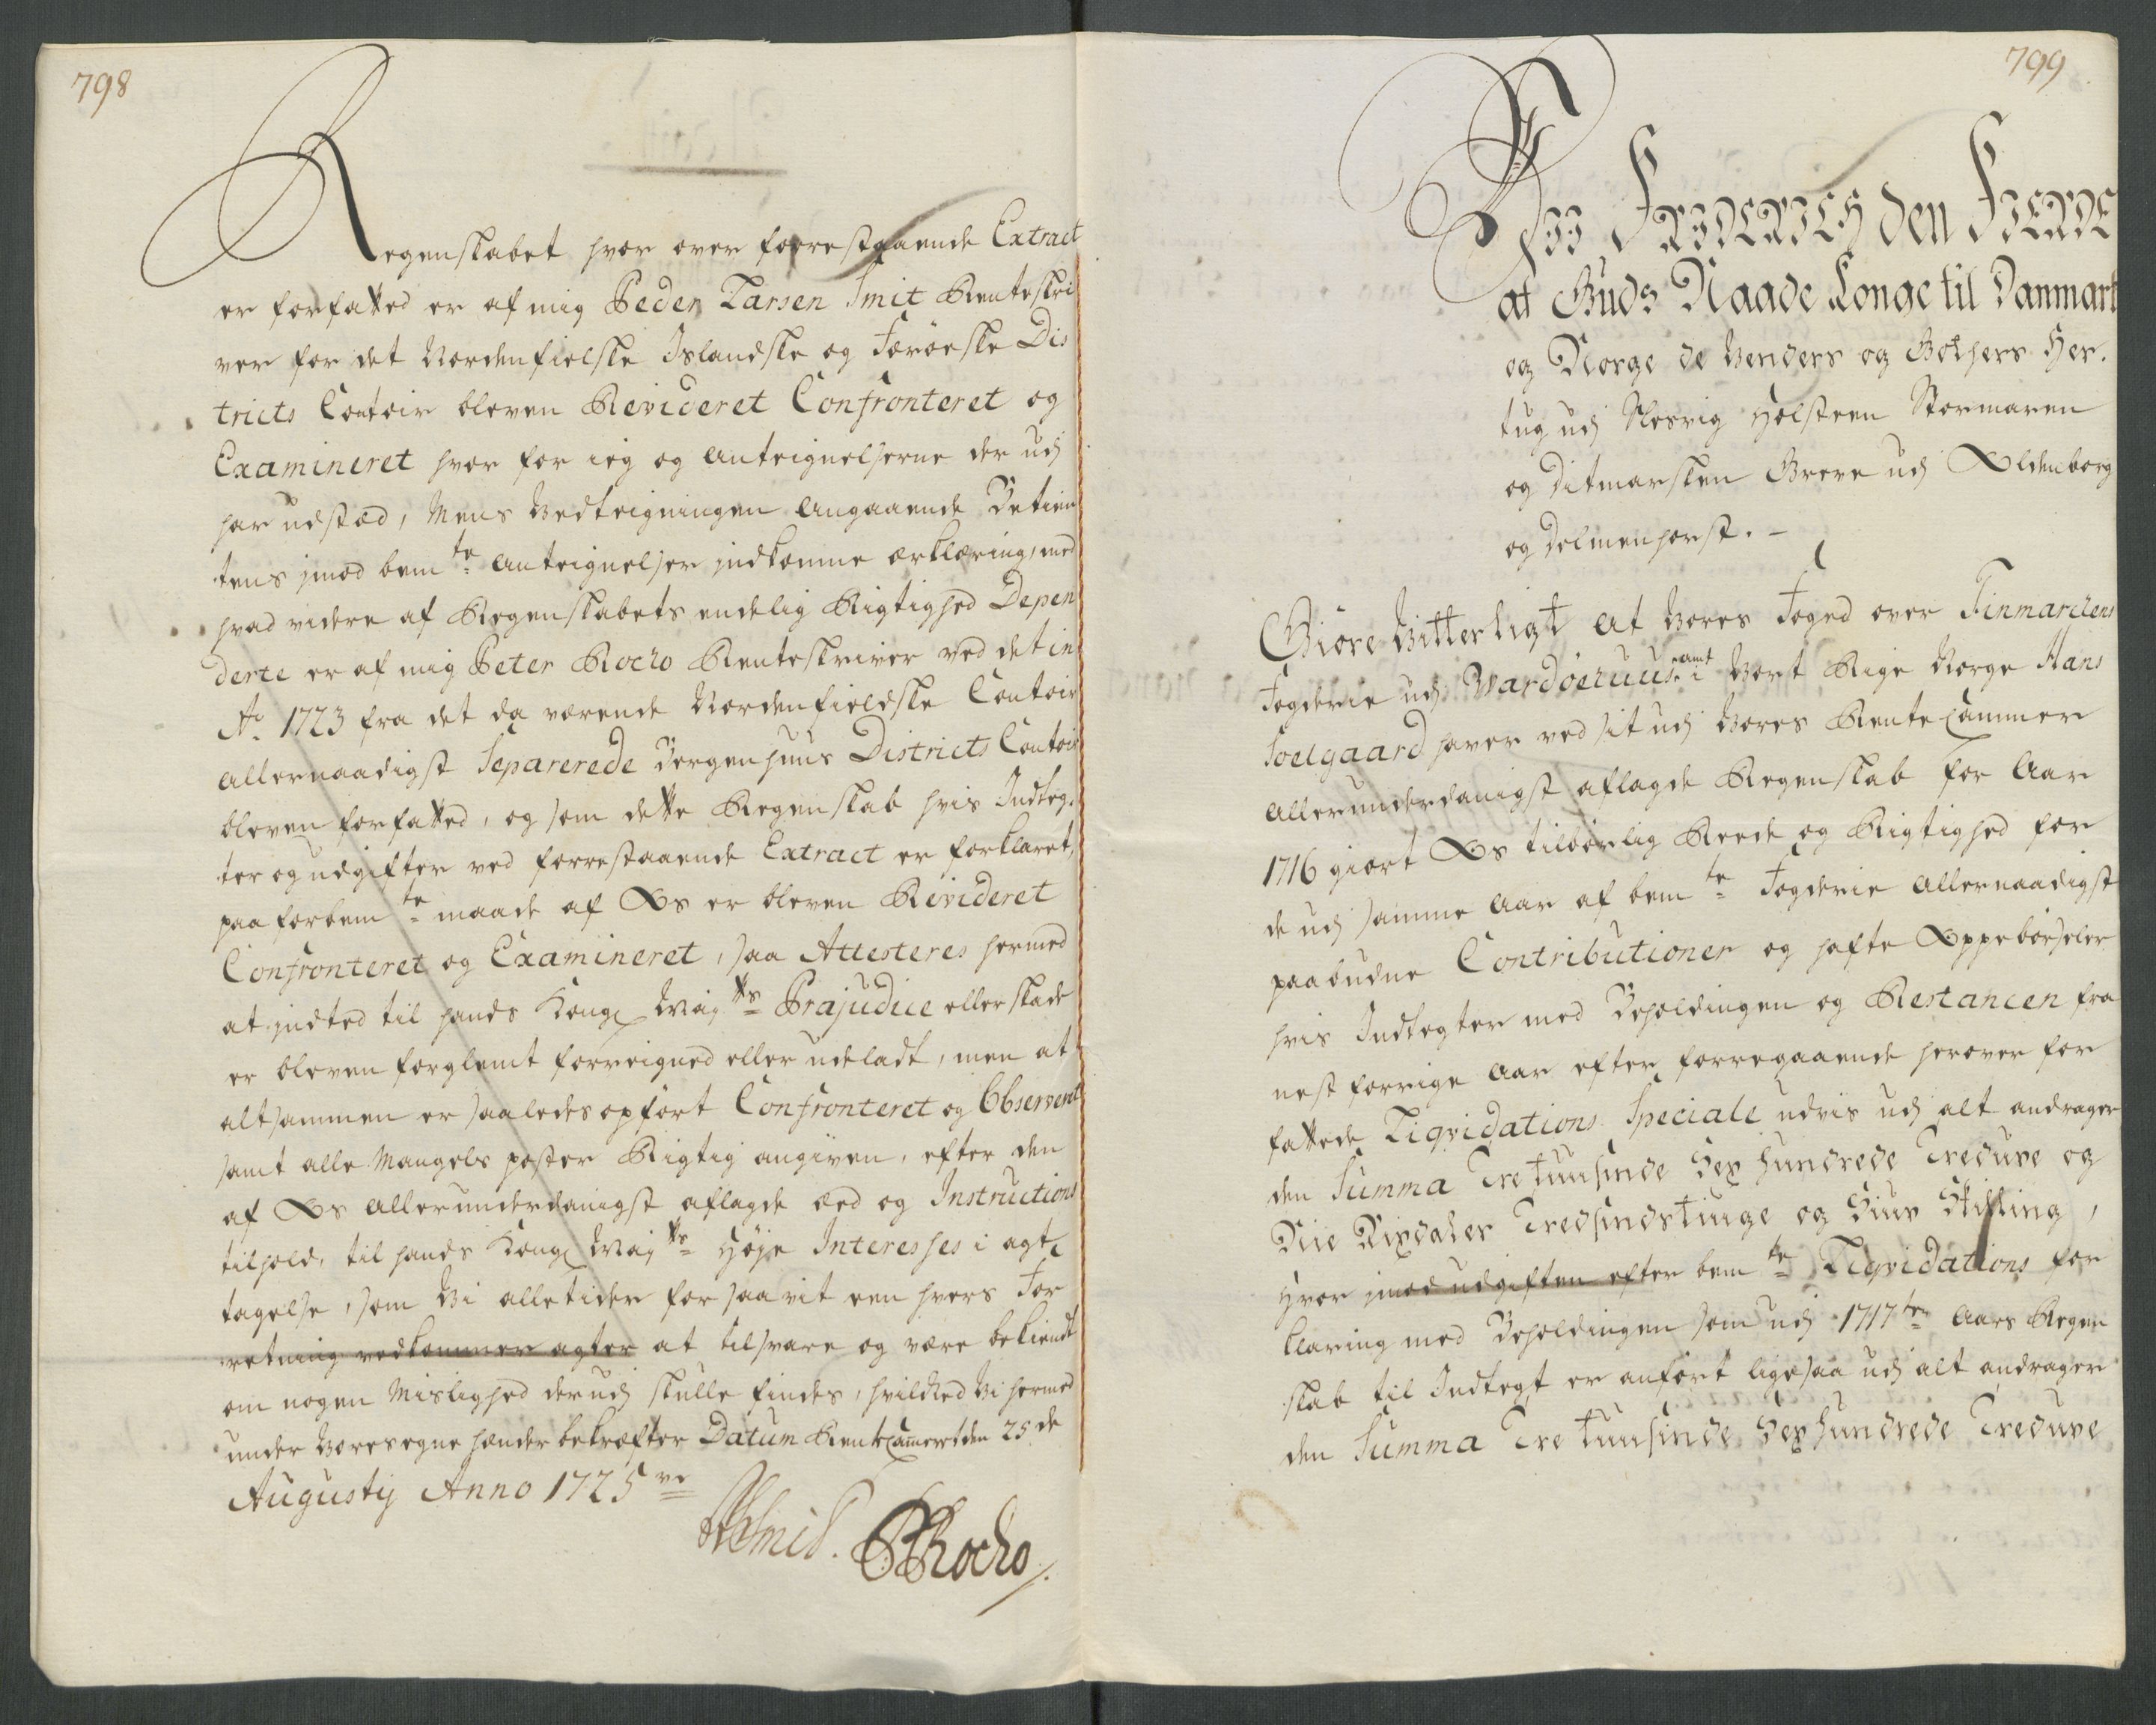 798
Regenskabet hvor over forrestaaende Extract
er forfatted er af mig Peder Larsen Smit Renteskri
ver for det Nordenfielske Islandske og Færöeske Dis
tricts Contoir bleven Revideret Confronteret og
Examineret hvor for ieg og Anteignelserne der udj
har udstæd, Mens Vedteigningen Angaaende Betien
tens jmod bemte Anteignelser jndkomne ærklæring, med
hvad videre af Regenskabets endelig Rigtighed Depen
derte er af mig Peter Rocho Renteskriver ved det in
Ao 1723 fra det da værende Nordenfieldske Contoir
allernaadigst Separerede Bergenhuus Districts Contoir
bleven forfatted, og som dette Regenskab hvis Indteg-
ter og udgifter ved forrestaaende Extract er forklaret,
paa forbemte maade af Os er bleven Revideret
Confronteret og Examineret, saa Attesteres hermed
at jndted til hands Kongl Maytts Præjudice eller skade
er bleven forglemt forreigned eller udeladt, men at
altsammen er saaledes opfört Confronteret og Observert
samt alle Mangels poster Rigtig angiven, efter den
af Os allerunderdanigst aflagde æed og Instructions
tilhold, til hands Kongl Maytts Höje Interesses i agt-
tagelse, som Vi alletider for saa vit een hvers For
retning vedkommer agter at tilsvare og være bekiendt
om nogen Mislighed derudj skulle findes, hvilcked Vi hermed
under Vores egne hænder bekræfter Datum RenteCammeret den 25de
Augustij Anno 1725ve
PLSmid. PRocho
799
Wii Friderich den Fierde
af Guds Naade Konge til Danmark
og Norge de Venders og Gothers Her-
tug udj Slesvig Holsteen Stormaren
og Ditmarsken Greve udj Oldenborg
og Delmenhorst. –
Giöre Vitterligt At Vores Foged over Finmarckens
Fogderie udj Wardöehuus amt i Vort Rige Norge Hans
Soelgaard haver ved sit udj Vores RenteCammer
allerunderdanigst aflagde Regenskab for Aar
1716 giort Os tilbörlig Reede og Rigtighed for
de udj samme Aar af bemte Fogderie Allernaadigst
paabudne Contributioner og hafte Oppebörseler
hvis Indtegter med Beholdingen og Restancen fra
nest forrige Aar efter forregaaende herover for
fattede Liqvidations Speciale udvis udj alt andrager
den Summa Tre tuusinde Sex hundrede Tredive og
Nie Rixdaler Tredsindstiuge og Siuv Skilling,
Hvor jmod udgiften efter bemte Liqvidations for
klaring med Beholdingen som udj 1717ten Aars Regen
skab til Indtegt er anfört ligesaa udj alt andrager
den Summa Tre tuusinde Sex hundrede Tredive